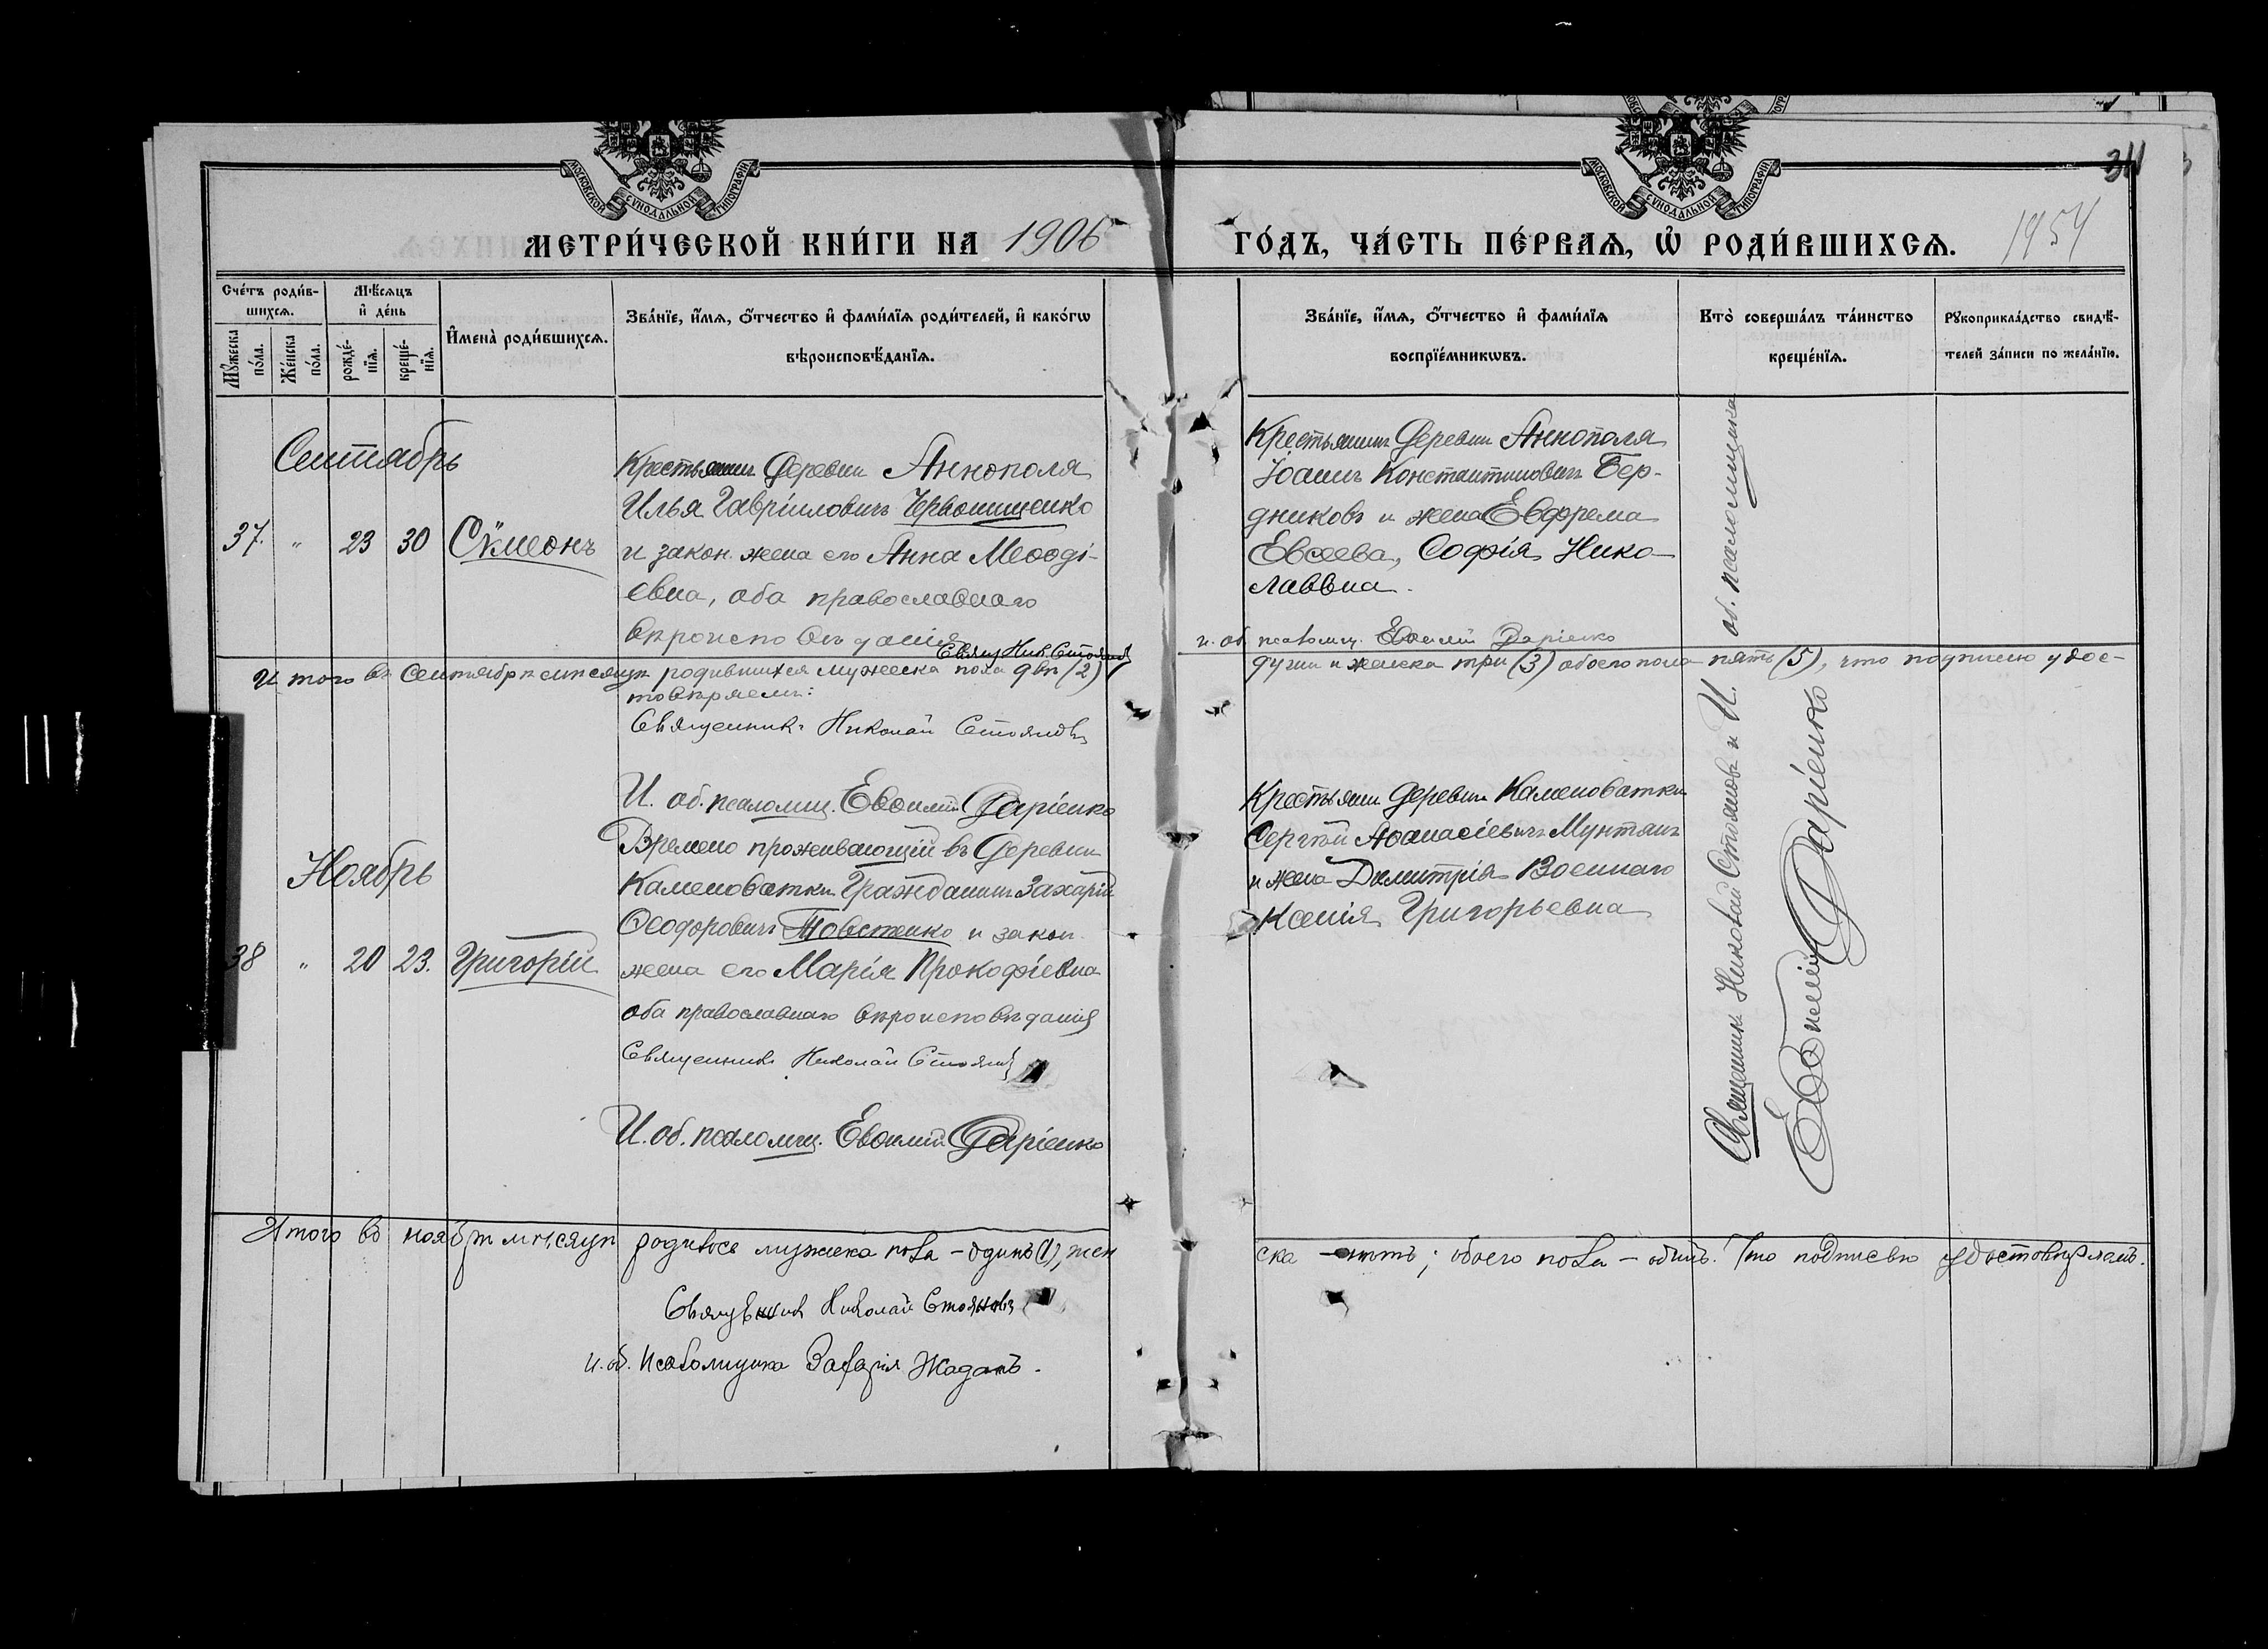 МОСКОВСКОЙ СѴНОДАЛЬНОЙ ТИПОГРАФІИ
МОСКОВСКОЙ СѴНОДАЛЬНОЙ ТИПОГРАФІИ
311
МЕТРИ́ЧЕСКОЙ КНИ́ГИ НА 1906 ГО́ДЪ, ЧА́СТЬ ПЕ́РВАѦ, Ѡ҆ РОДИ́ВШИХСѦ.
1954
Сче́тъ роди́в-
шихсѧ.
Мꙋ́жеска по́ла.
Же́нска по́ла.
Мѣ́сѧцъ
и҆ де́нь
рожде́-
нїѧ.
креще́-
нїѧ.
И҆мена̀ роди́вшихсѧ.
Зва́нїе, и҆́мѧ, ѻ҆́тчество и҆ фами́лїѧ роди́телей, и҆ како́гѡ
вѣроисповѣ́данїѧ.
Зва́нїе, и҆́мѧ, ѻ҆́тчество и҆ фами́лїѧ
воспрїе́мникѡвъ.
Кто̀ соверша́лъ та́инство
креще́нїѧ.
Рꙋкоприкла́дство свидѣ́-
телей за́писи по жела́нїю.
Сентябрь
37. " 23 30 Сѵмеонъ
Крестьянинъ Деревни Аннополя
Илья Гавріиловичъ Червонищенко
и закон. жена его Анна Меѳоді-
евна, оба православнаго
вѣроисповѣданія
Свящ. Ник. Стояновъ
Крестьянинъ Деревни Аннополя
Іоаннъ Константиновичъ Бер-
дниковъ и жена Евфрема
Евсеева, Софія Нико-
лаевна.
и. об. псаломщ. Евѳимій Даріенко
Итого въ Сентябрѣ мѣсяцѣ родившихся мужеска пола два (2)
души и женска три (3) обоего пола пять (5), что подписью удос-
товѣряемъ:
Священникъ Николай Стояновъ
И. об. псаломщ. Евѳимій Даріенко
Ноябрь
38 " 20 23. Григорій
Времено проживающій въ Деревни
Каменоватки Гражданинъ Захарій
Ѳеодоровичъ Товстенко и закон.
жена его Марія Прокофіевна
оба православнаго вѣроисповѣданія
Священникъ Николай Стояновъ
И. об. псаломщ. Евѳимій Даріенко
Крестьянин Деревни Каменоватки
Сергѣй Аѳанасіевичъ Мунтянъ
и жена Димитрія Военнаго
Ксенія Григорьевна
Священникъ Николай Стояновъ и И. об. псаломщика
Евѳимій Даріенко
Итого въ ноябрѣ мѣсяцѣ родилось мужеска пола – одинъ (1), жен
ска – нѣтъ; обоего пола – одинъ. Что подписью удостовѣряемъ.
Священникъ Николай Стояновъ
и. об. Псаломщика Захарія Жаданъ.